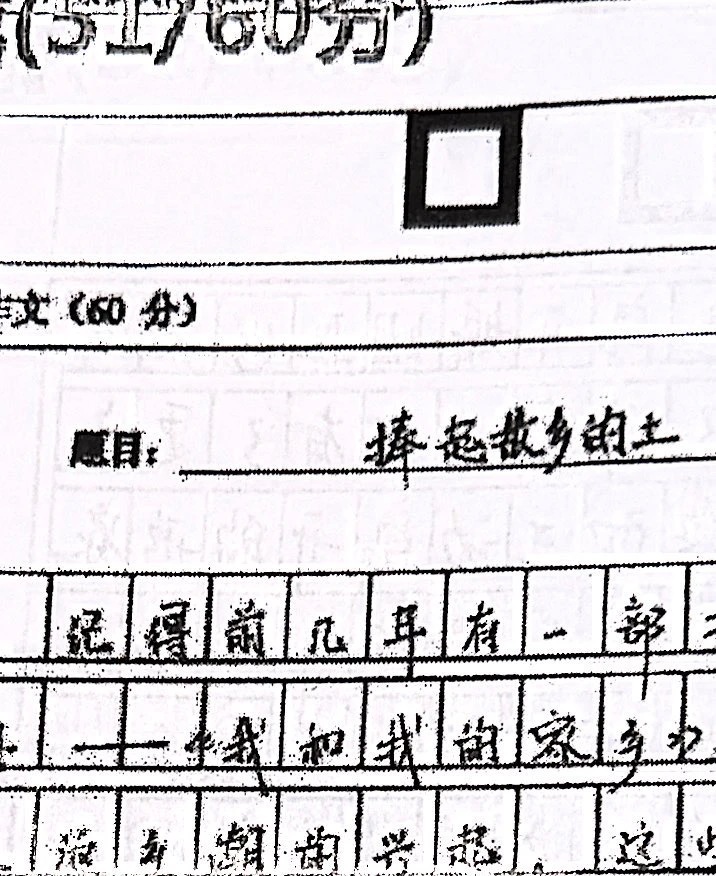 (51/60分)
作文（60 分）
题目： 捧起故乡的土
记得前几年有一部
——《我和我的家乡》
返乡潮的兴起，这些